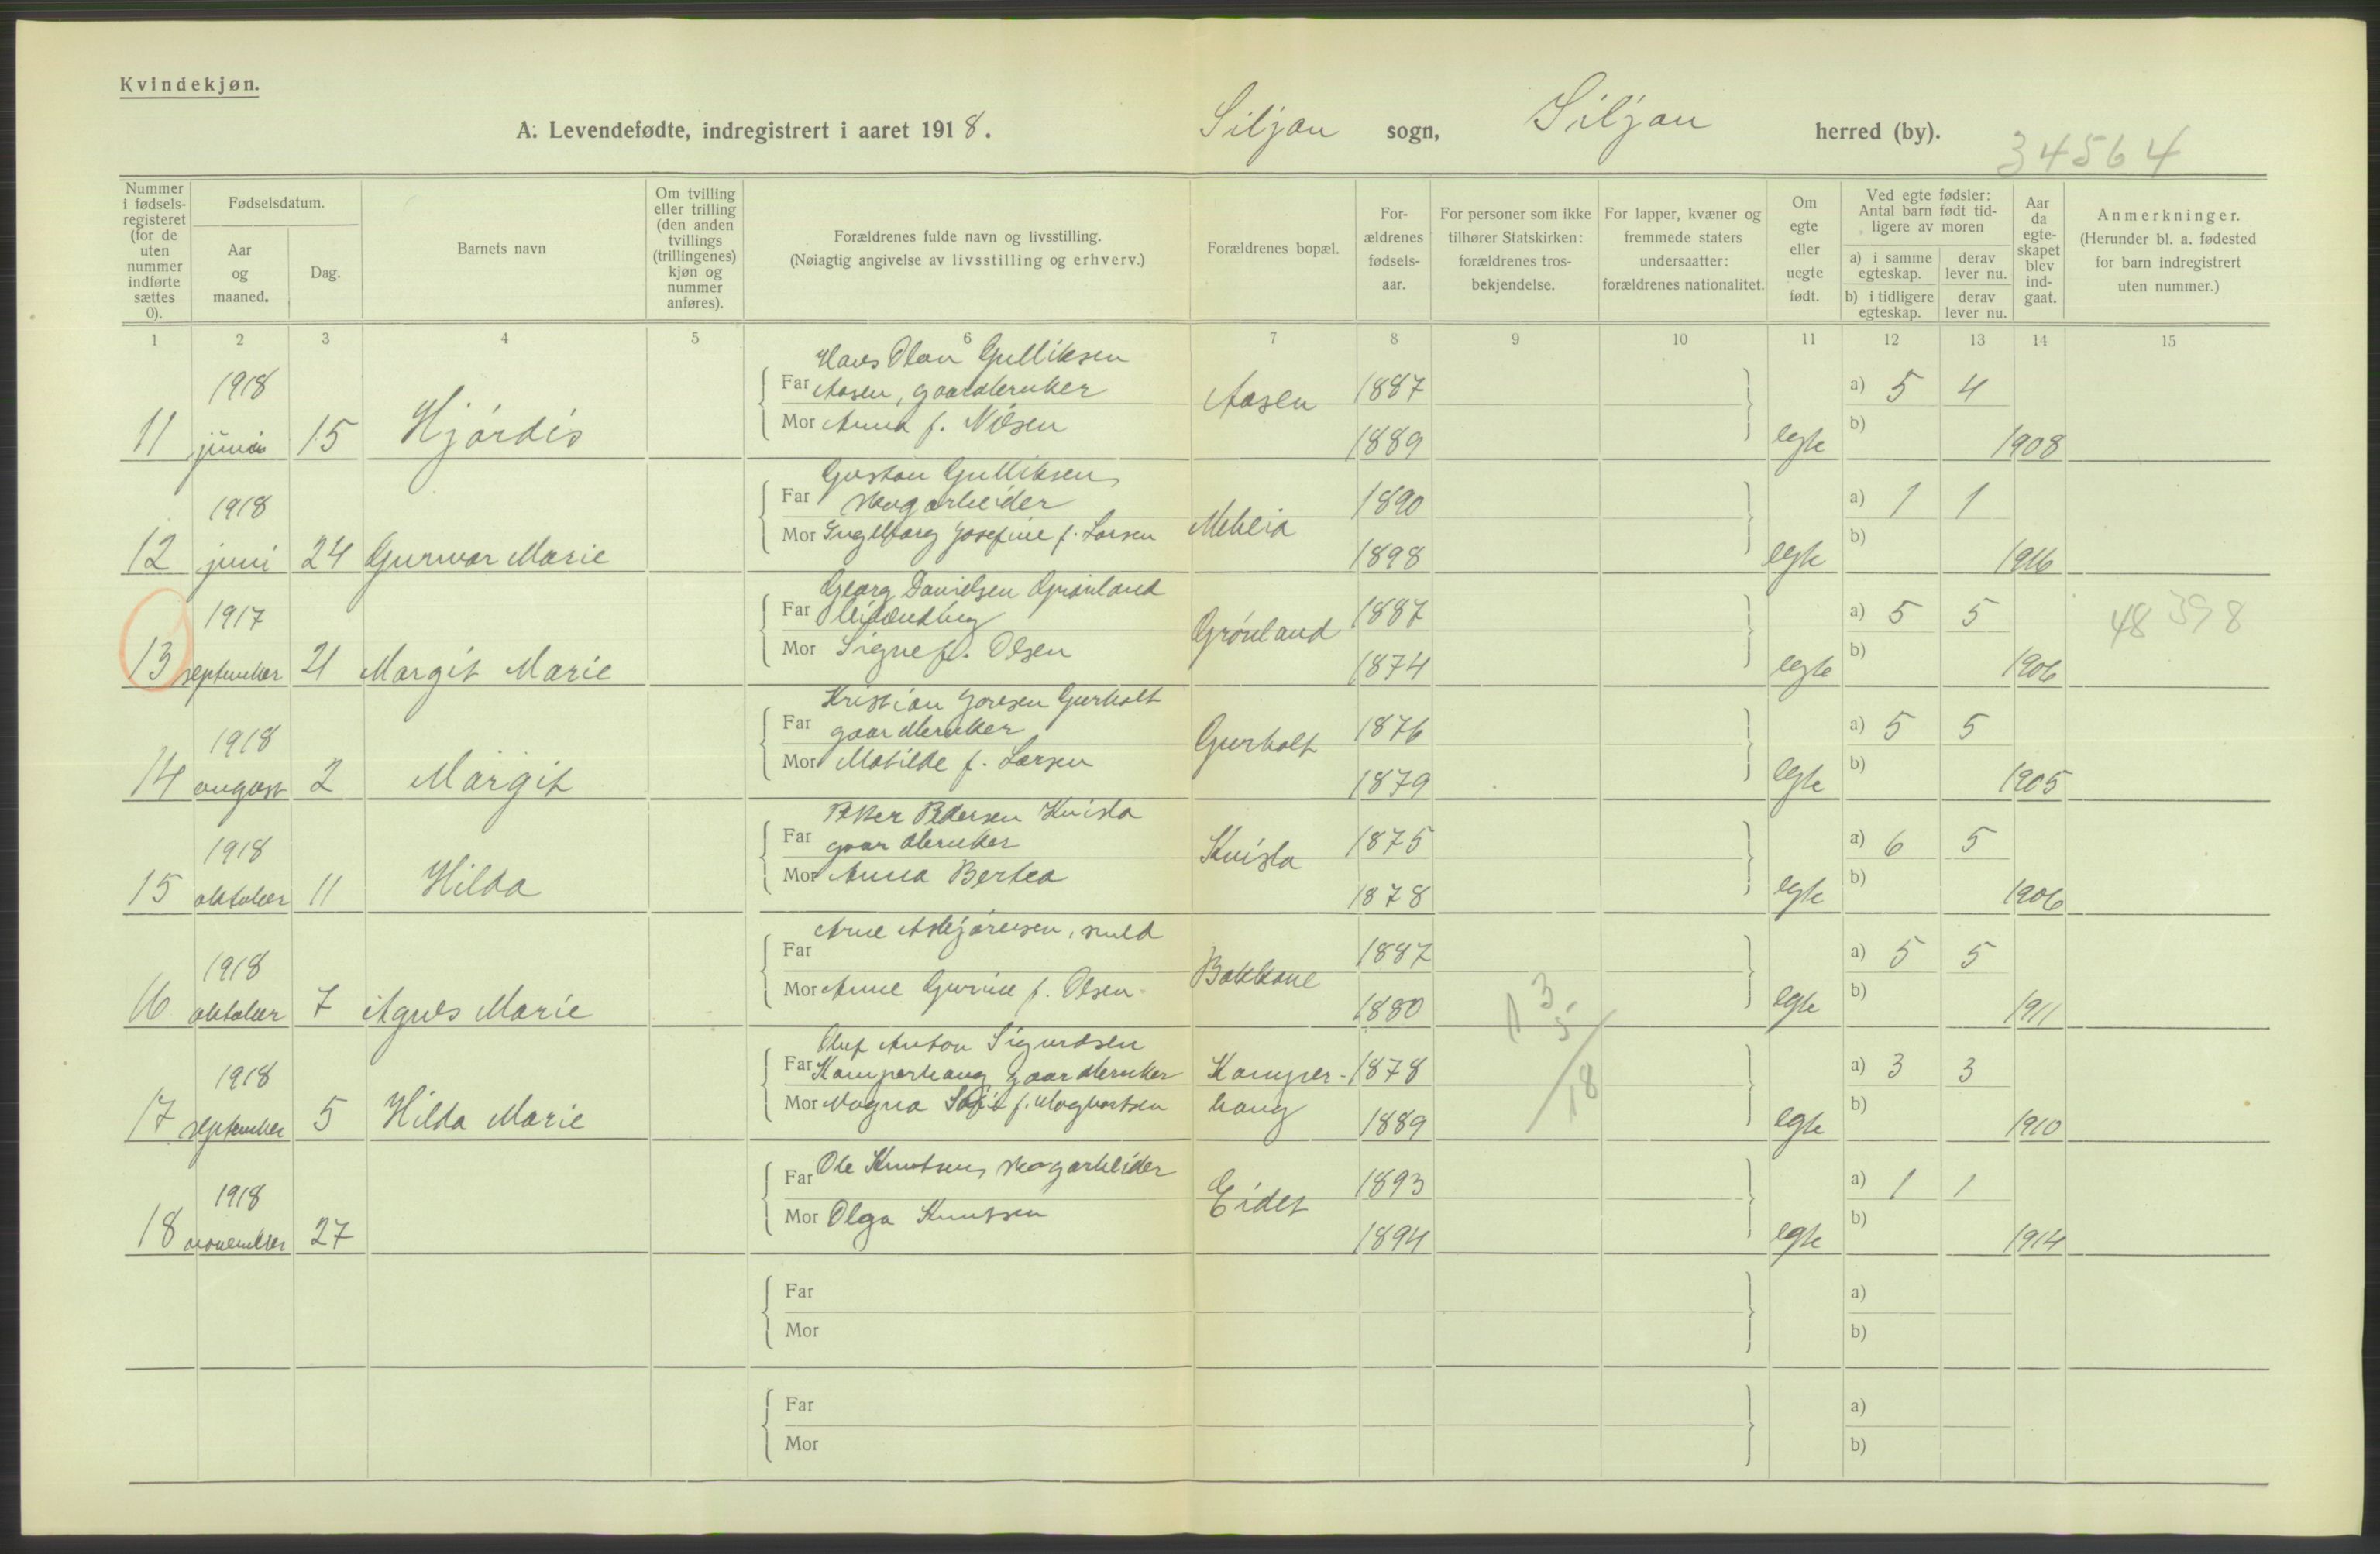 Kvindekjøn.
A. Levendefødte, indregistrert i aaret 1918. Siljan sogn, Siljan herred (by).
34564
Nummer i fødsels-registeret (for de uten nummer indførte sættes 0).
Fødselsdatum.
Aar og maaned.
Dag.
Barnets navn
Om tvilling eller trilling (den anden tvillings (trillingenes) kjøn og nummer anføres).
Forældrenes fulde navn og livsstilling.
(Nøiagtig angivelse av livsstilling og erhverv.)
Forældrenes bopæl.
For-ældrenes fødsels-aar.
For personer som ikke tilhører Statskirken: forældrenes tros-bekjendelse.
For lapper, kvæner og fremmede staters undersaatter: forældrenes nationalitet.
Om egte eller uegte født.
Ved egte fødsler: Antal barn født tid-ligere av moren
a) i samme egteskap.
derav lever nu.
b) i tidligere egteskap.
derav lever nu.
Aar da egte-skapet blev ind-gaat.
Anmerkninger.
(Herunder bl. a. fødested for barn indregistrert uten nummer.)
1 2 3 4 5 6 7 8 9 10 11 12 13 14 15
Hans Olan Gulliksen
1918 Far Aasen, gaardbruker Aasen 1887 a) 5 4
11 juni 15 Hjørdis Mor Anna f. Nilsen 1889 egte b) 1908
Gustav Gulliksen,
1918 Far skogarbeider Mehlia 1890 a) 1 1
12 juni 24 Gunvor Marie Mor Ingeborg Josefine f. Larsen 1898 egte b) 1916
Georg Danielsen Grönland
1917 Far Grönland 1887 a) 5 5 48 398
13 september 21 Margit Marie Mor Signe f. Olsen 1874 egte b) 1906
Kristian Jonsen Gurholt
1918 Far gaardbruker Gurholt 1876 a) 5 5
14 august 2 Margit Mor Matilde f. Larsen 1879 egte b) 1905
Peder Pedersen Kvisla
1918 Far gaardbruker Kvisla 1875 a) 6 5
15 oktober 11 Hilda Mor Anna Bertea 1878 egte b) 1906
Arne Asbjörnsen,
1918 Far Bakkane 1887 a) 5 5
16 oktober 7 Agnes Marie Mor Anne Gurine f. Olsen 1880 egte b) 1911
13/5 18
Oluf Anton Sigurdsen
1918 Far Kamperhaug gaardbruker Kamper- 1878 a) 3 3
17 september 5 Hilda Marie Mor Magna Sofie f. haug 1889 egte b) 1910
1918 Far Ole Knutsen, skogarbeider Eidet 1893 a) 1 1
18 november 27 Mor Olga Knutsen 1894 egte b) 1914
Far a)
Mor b)
Far a)
Mor b)